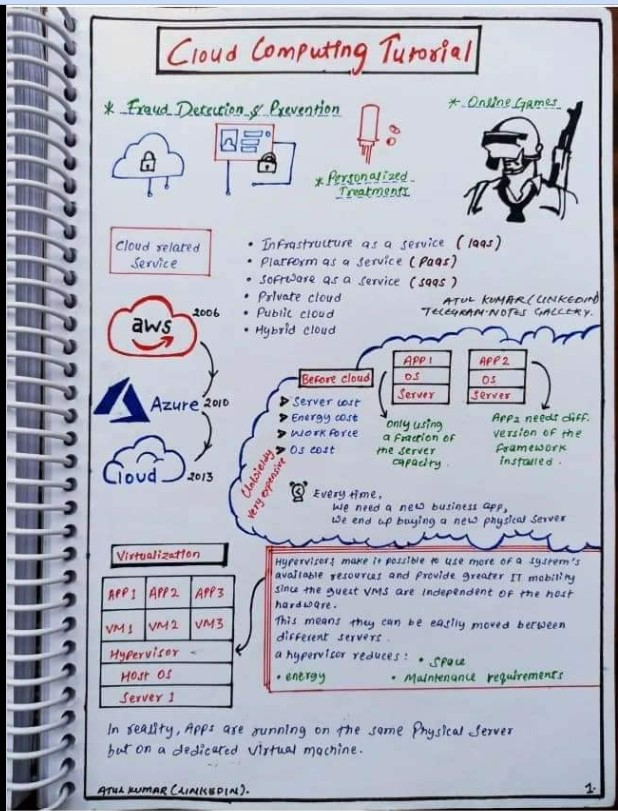 Cloud Computing Turorial
* Fraud Detection & Prevention
* Online Games
* Personalized
Treatments
Cloud related
Service
• Infrastructure as a service (Iaas)
• Platform as a service (Paas)
• Software as a service (saas)
• Private cloud
• Public cloud
• Hybrid cloud
ATUL KUMAR (LINKEDIN)
TELEGRAM-NOTES GALLERY.
aws 2006
Azure 2010
Cloud 2013
Before cloud
➤ Server cost
➤ Energy cost
➤ Work force
➤ OS cost
Unwieldy
very expensive
APP 1
OS
Server
APP 2
OS
Server
Only using
a fraction of
the server
capacity.
App2 needs diff.
version of the
Framework
installed.
Every time,
We need a new business app,
We end up buying a new physical server
Virtualization
APP 1 APP 2 APP 3
VM1 VM2 VM3
Hypervisor
Host OS
Server 1
Hypervisors make it possible to use more of a system's
available resources and provide greater IT mobility
since the guest VMS are independent of the host
hardware.
This means they can be easily moved between
different servers.
a hypervisor reduces: • Space
• energy • Maintenance requirements
In reality, Apps are running on the same Physical Server
but on a dedicated virtual machine.
ATUL KUMAR (LINKEDIN).
1.